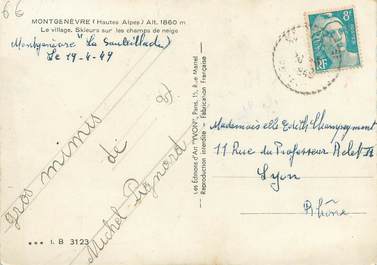 66
MONTGENÈVRE (Hautes Alpes) Alt. 1860 m
Le village. Skieurs sur les champs de neige
Montgenèvre "La Sauteillade"
Le 19-4-49
gros mimis
de
Michel Pignard
*** I. B 3123
Les Editions d'Art "YVON", Paris, 15, Rue Martel
Reproduction interdite - Fabrication Française
8F
RF
Mademoiselle Edith Champagnent
11 Rue du Professeur
Lyon
Rhône